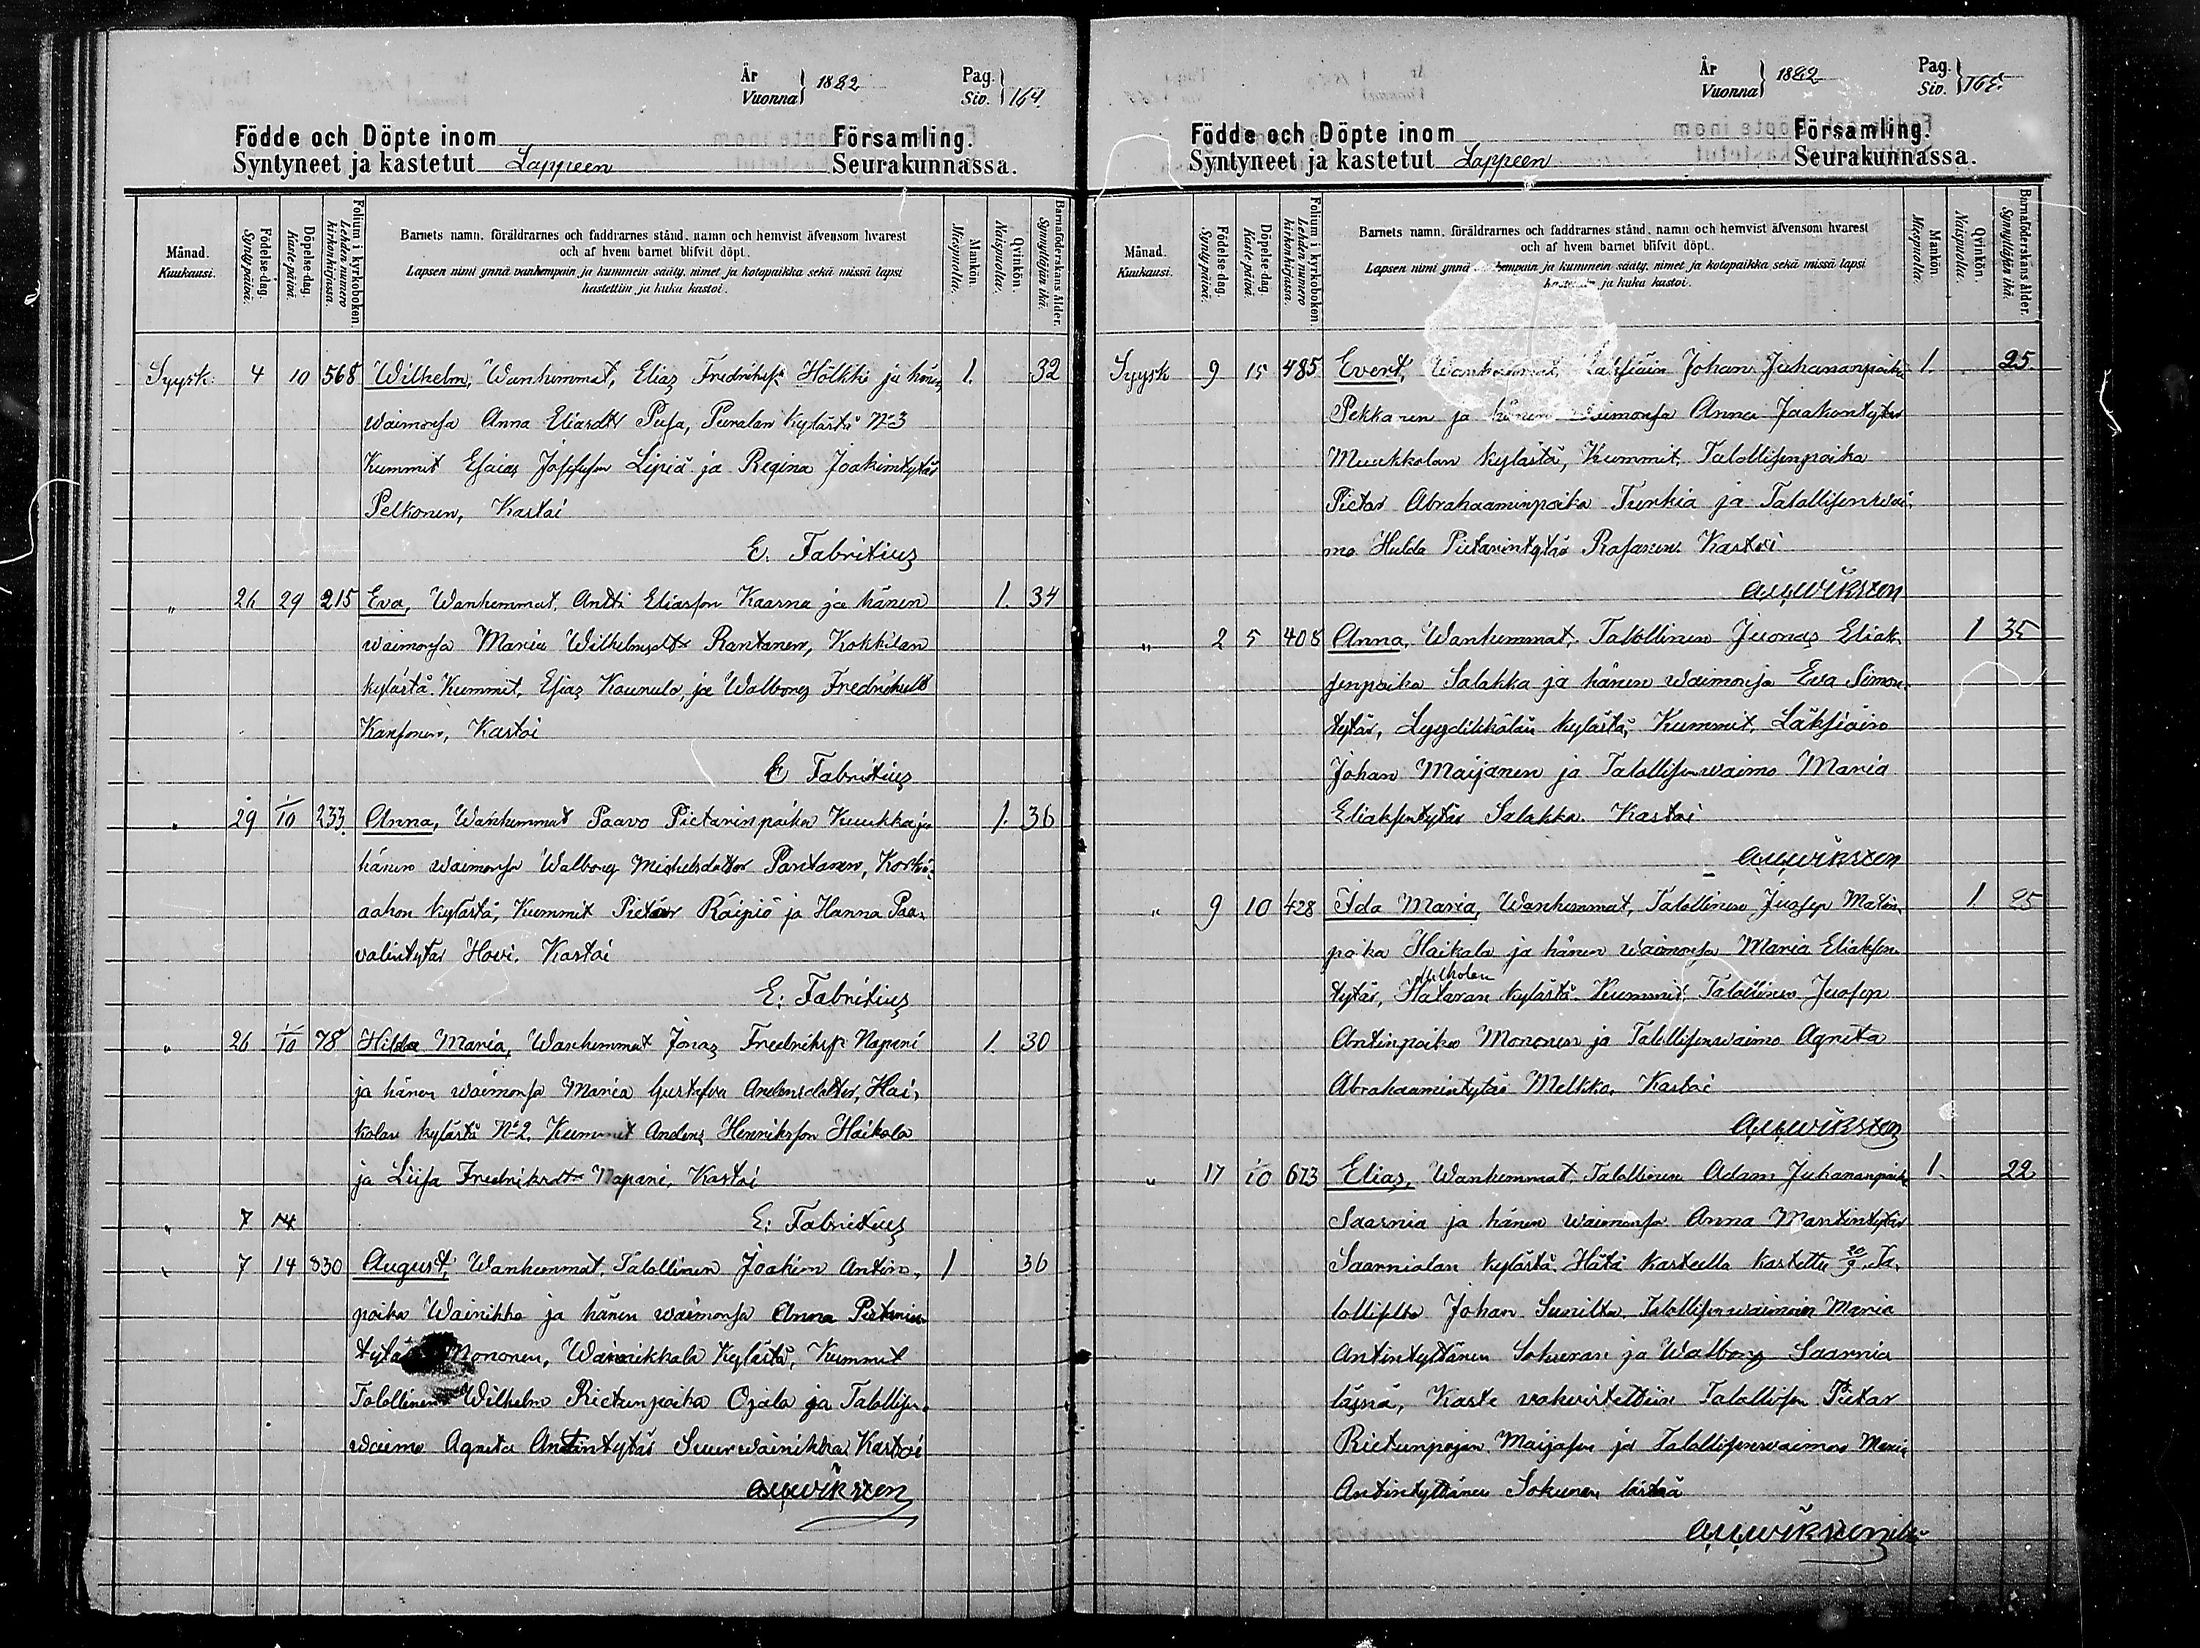 År
Vuonna
1882
Pag.
Siv.
164.
Födde och Döpte inom Församling.
Syntyneet ja kastetut Lappeen Seurakunnassa.
Månad.
Kuukausi.
Födelse-dag.
Synty-päivä.
Döpelse-dag.
Kaste-päivä.
Folium i kyrkoboken.
Lehden numero
kirkonkirjassa.
Barnets namn, föräldrarnes och faddrarnes stånd, namn och hemvist äfvensom hvarest
och af hvem barnet blifvit döpt.
Lapsen nimi ynnä vanhempain ja kummein sääty, nimet ja kotopaikka sekä missä lapsi
kastettiin ja kuka kastoi.
Mankön.
Miespuolia.
Qvinkön.
Naispuolia.
Barnaföderskans ålder.
Synnyttäjän ikä.
Syysk. 4 10 568 Wilhelm, Wanhemmat, Elias Fredriksp. Hölkki ja hänen 1. 32
waimonsa Anna Eliasdtr Pusa, Puralan kylästä No 3
Kummit Esaias Josefsson Lipiä ja Regina Joakimtytär
Pelkonen, Kastoi
E. Fabritius
" 26 29 215 Eva, Wanhemmat, Antti Eliasson Kaarna ja hänen 1. 34
waimonsa Maria Wilhelmsdtr Rantanen, Kokkilan
kylästä. Kummit, Esias Kaunula, ja Walborg
Kansonen, Kastoi
E Fabritius
" 29 1/10 233. Anna, Wanhemmat Paavo Pietarinpoika Kuukka ja 1. 36
hänen waimonsa Walborg Michelsdotter Pantanen, Korkea,
aahon kylästä, Kummit Pietar Räipiö ja Hanna Paa,
valintytär Hovi. Kastoi
E: Fabritius
" 26 1/10 78 Hilda Maria, Wanhemmat Jonas Fredriksp Napari 1. 30
ja hänen waimonsa Maria Gustafva Andersdotter, Hai,
kolan kylästä No 2. Kummit Anders Henriksson Haikala
ja Liisa Fredriksdtr Napari, Kastoi
" 7 14 E: Fabritius
" 7 14 830 August, Wanhemmat, Talollinen Joakim Antin, 1 36
poika Wainikka ja hänen waimonsa Anna Pietarin
tytär Mononen, Wainikkala Kylästä, Kummit
Talollinen Wilhelm Rietunpoika Ojala ja Talollisen,
waimo Agneta Antintytär Suurwainikka Kastoi
Aug Wiksten
År
Vuonna
1882
Pag.
Siv.
165.
Födde och Döpte inom Församling.
Syntyneet ja kastetut Lappeen Seurakunnassa.
Månad.
Kuukausi.
Födelse-dag.
Synty-päivä.
Döpelse-dag.
Kaste-päivä.
Folium i kyrkoboken.
Lehden numero
kirkonkirjassa.
Barnets namn, föräldrarnes och faddrarnes stånd, namn och hemvist äfvensom hvarest
och af hvem barnet blifvit döpt.
Lapsen nimi ynnä vanhempain ja kummein sääty, nimet ja kotopaikka sekä missä lapsi
kastettiin ja kuka kastoi.
Mankön.
Miespuolia.
Qvinkön.
Naispuolia.
Barnaföderskans ålder.
Synnyttäjän ikä.
Syysk 9 15 485 Evert, Wanhemmat, Läksiäin Johan Juhananpoika 1. 25.
Pekkanen ja hänen waimonsa Anna Jaakontytär
Muukkolan kylästä, Kummit, Talollisenpoika
Pietar Abrahaaminpoika Turkia ja Talollisenwai,
mo Hulda Pietarintytär Rasanen. Kastoi
Aug Wiksten
" 2 5 408 Anna, Wanhemmat, Talollinen Juonas Eliak, 1 35
senpoika Salakka ja hänen waimonsa Eva Simon,
tytär, Lyydikkälän kylästä, Kummit, Läksiäin
Johan Maijanen ja Talollisenwaimo Maria
Eliaksentytär Salakka. Kastoi
Aug Wiksten
" 9 10 428 Ida Maria, Wanhemmat, Talollinen Juosep Matin, 1. 25
poika Haikala ja hänen waimonsa Maria Eliaksen
tytär, Hataran kylästä. Kummit, Talollinen Juosep
Antinpoika Mononen ja Talollisenwaimo Agneta
Abrahaamintytär Melkko. Kastoi
Aug Wiksten
" 17 1/10 673 Elias, Wanhemmat, Talollinen Adam Juhananpoik 1. 22
Saarnia ja hänen waimonsa Anna Martintytär
Saarnialan kylästä. Hätä kasteella kastettu 20/9, Ta,
lolliselta Johan Sunilta, Talollisenwaimoin Maria
Antintyttären Sokuran ja Walborg Saarnia
läsnä, Kaste vahvistettiin Talollisen Pietar
Rietunpojan Maijasen ja Talollisenwaimon Maria
Antintyttären Sokuran läsnä
Aug Wikstenilta